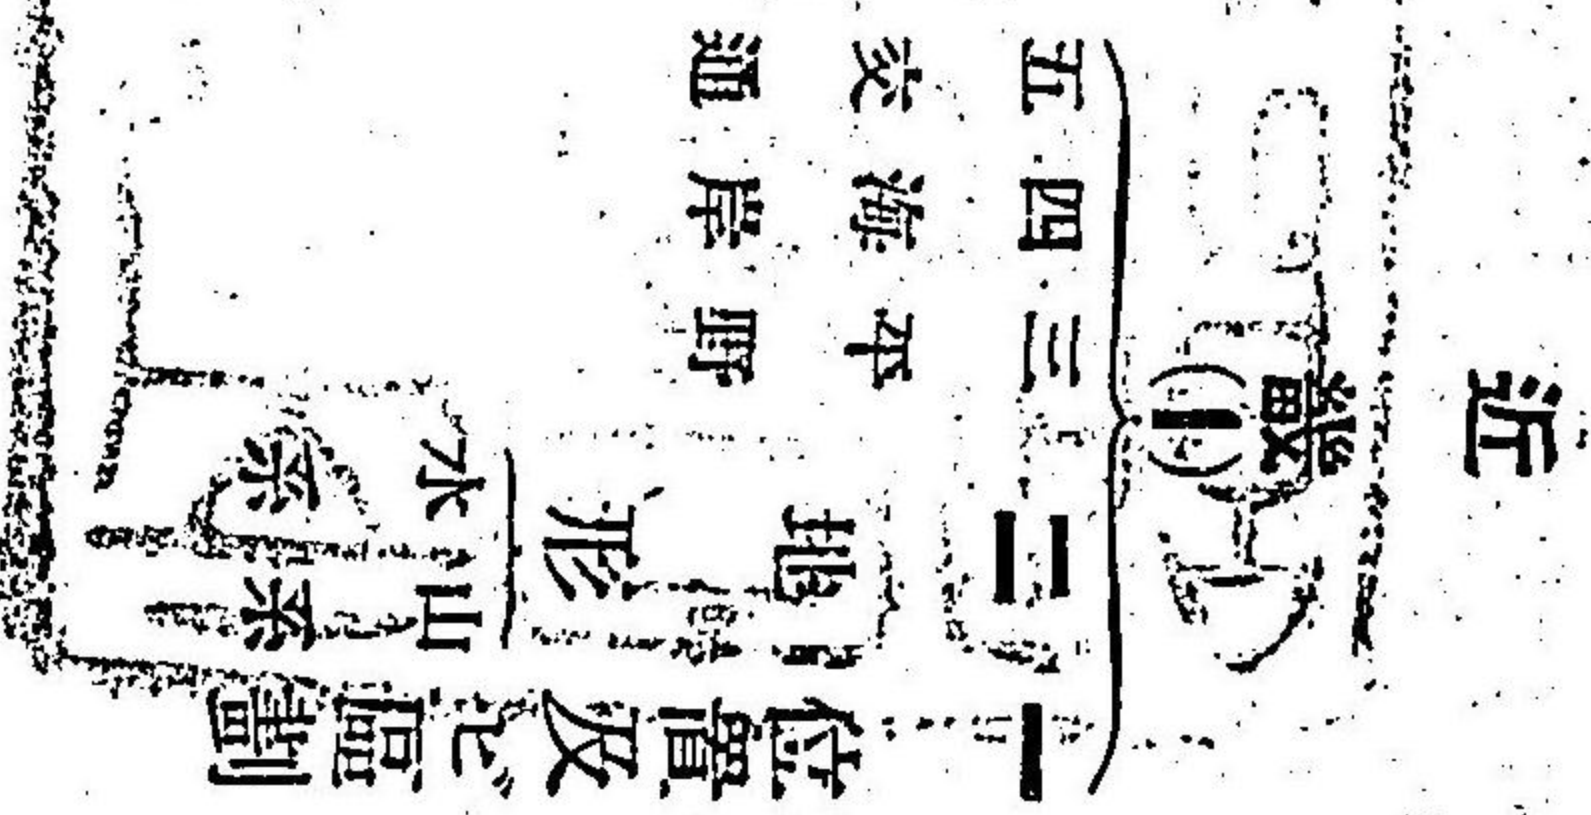 近畿(一)
一 位置及ビ區劃
二 地形
山系
水系
三 平野
四 海岸
五 交通